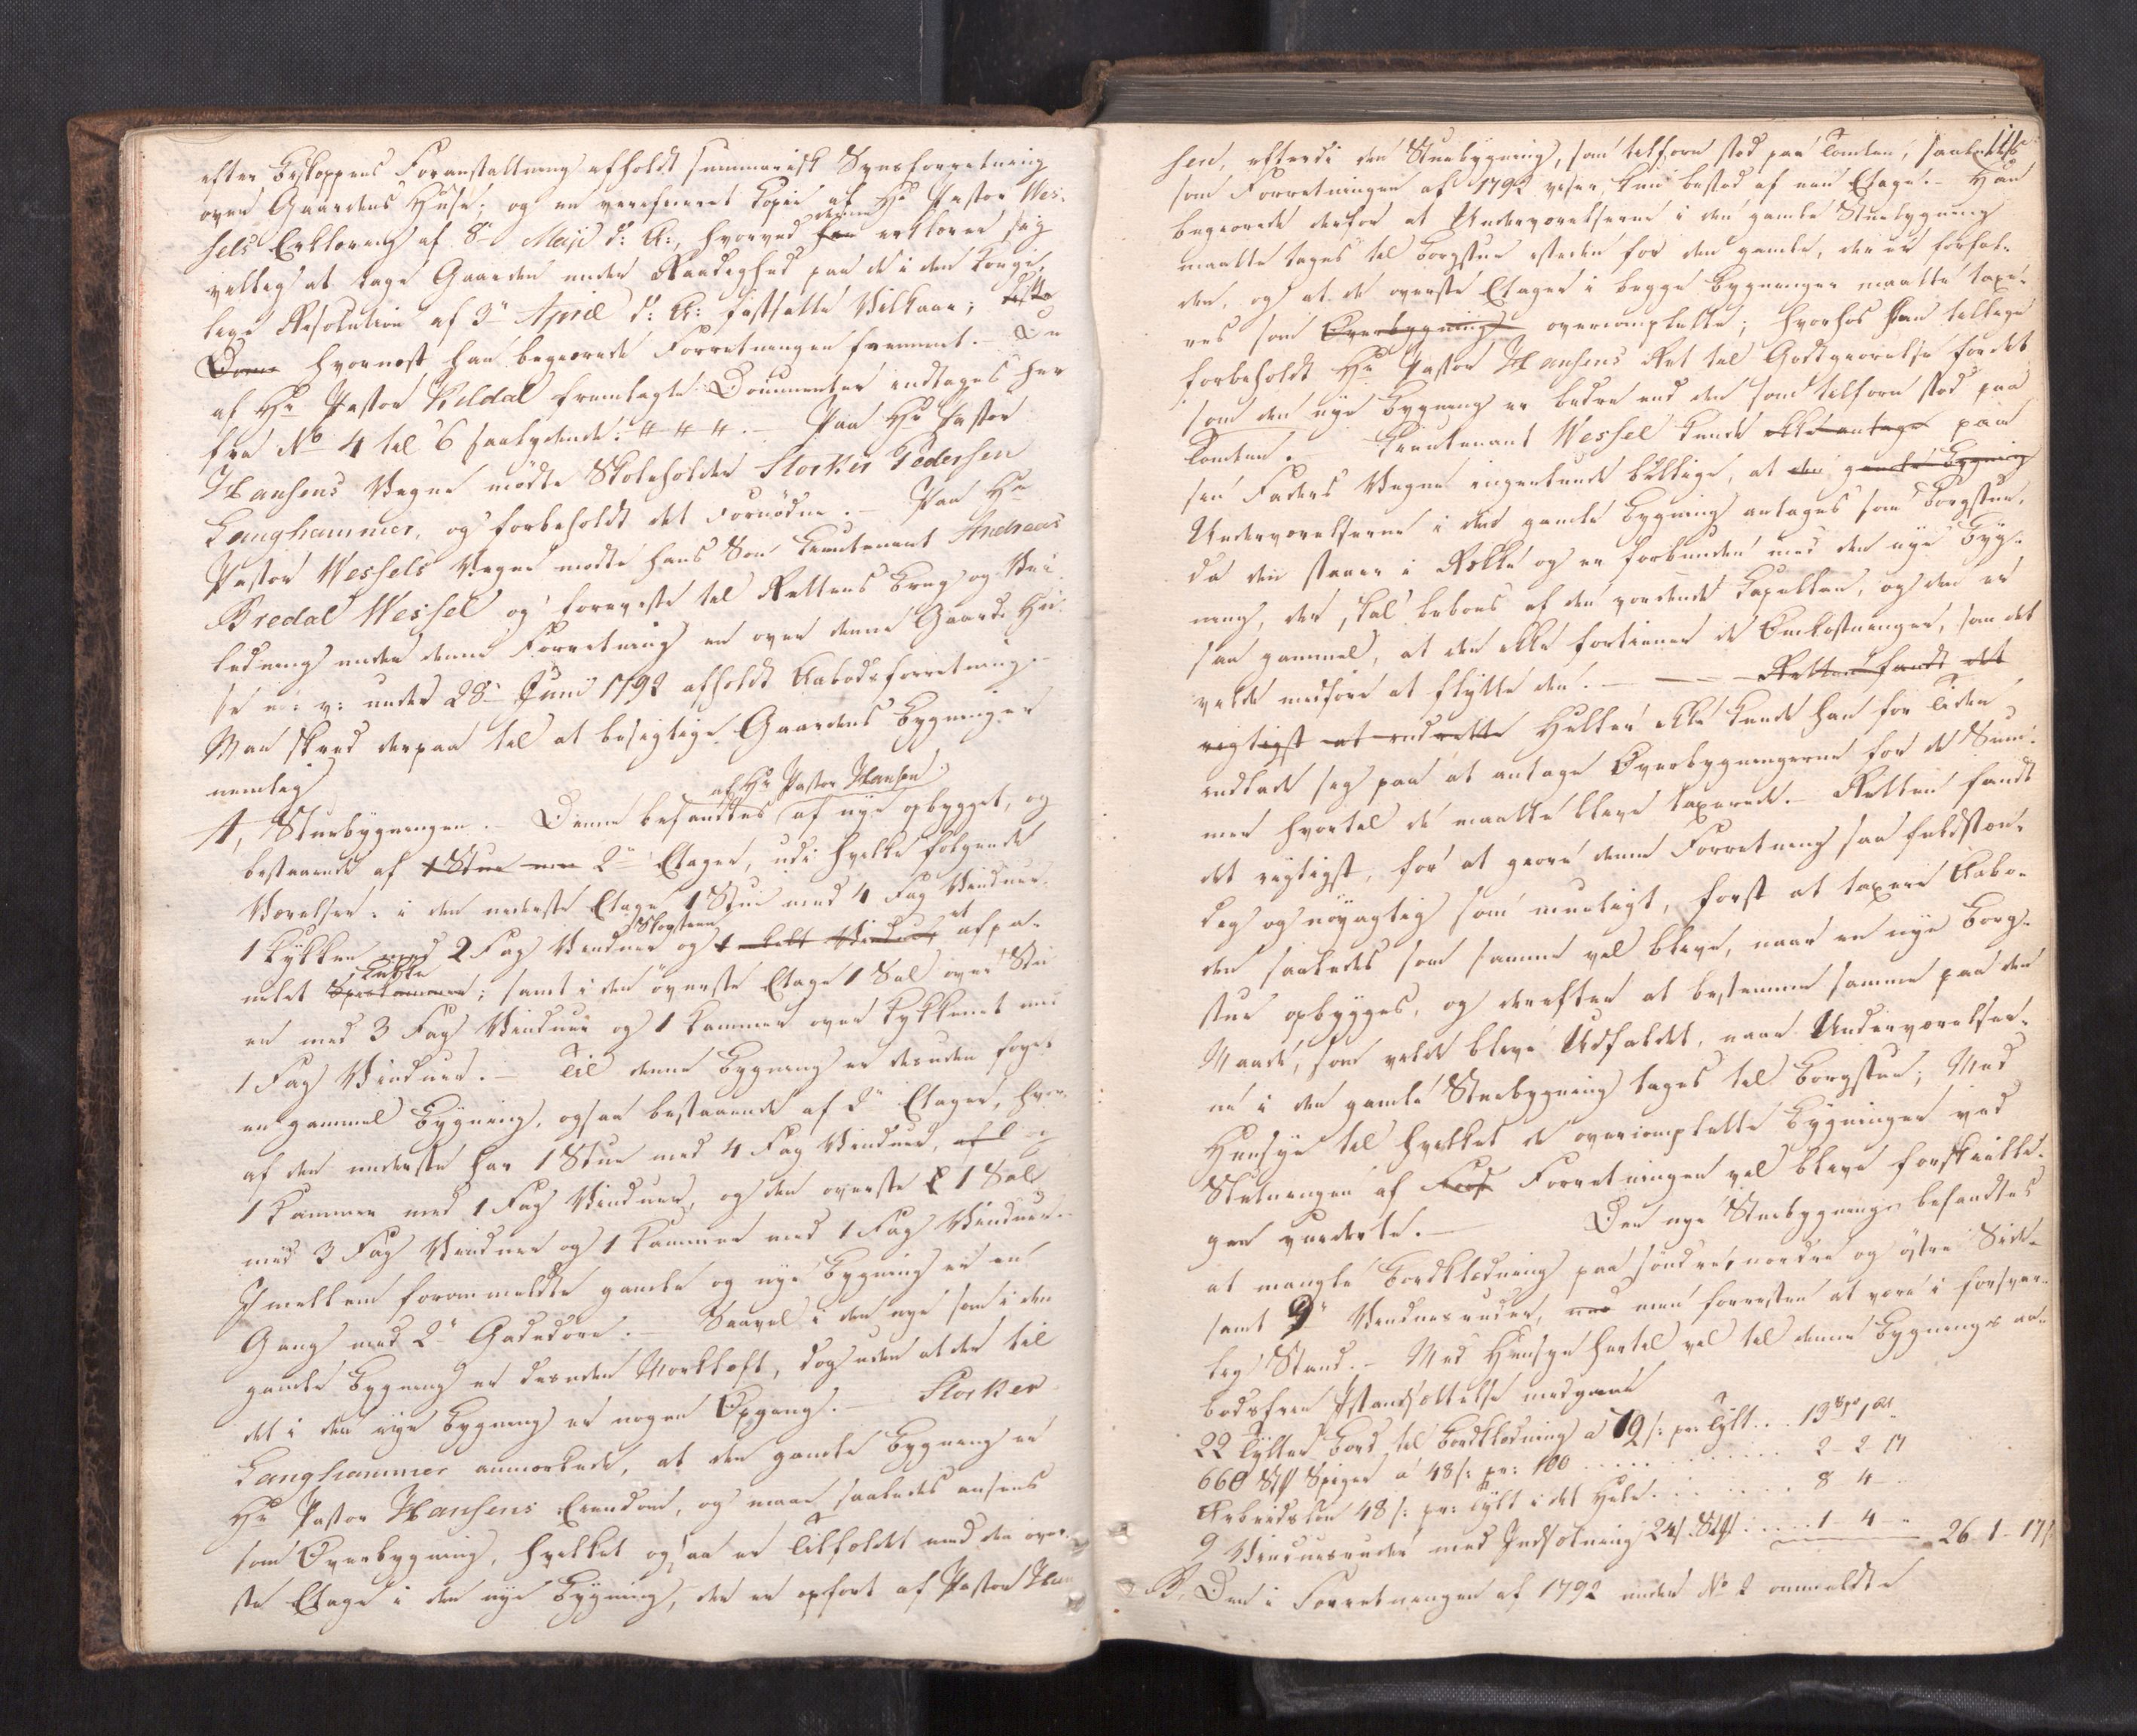 efter Biskoppens Foranstaltning afholdt summarisk Synsforretning
over Gaardens Huse; og en verificeret Copie af Hr Pastor Wes-
sels Erklæring af 8de Maji d: A:, hvorved denne erklærer sig
villig at tage Gaarden under Raadighed paa de i den Konge-
lige Resolution af 3de April d: A: fastsatte Vilkaar;
hvornæst han begiærede Forretningen fremmet. - De
af Hr Pastor Kildal fremlagte Documenter indtages her
fra No 4 til 6 saalydende: # # #. - Paa Hr Pastor
Hansens Vegne mødte Skoleholder Storker Pedersen
Langhammer, og forbeholdt det Fornødne. - Paa Hr
Pastor Wessels Vegne mødte hans Søn Lieutenant Andreas
Bredal Wessel og foreviste til Rettens Brug og Vei-
ledning under denne Forretning en over denne Gaards Hu-
se m: v: under 28de Juni 1792 afholdt Aabodsforretning. -
Man skred derpaa til at besigtige Gaardens Bygninger
nemlig
af Hr Pastor Hansen
A, Stuebygningen. - Denne befandtes af nye opbygget, og
bestaaende af 1 Stue 2de Etager, udi hvilke følgende
Værelser: i den nederste Etage 1 Stue med 4 Fag Vinduer,
1 Kykken med 2 Fag Vinduer og Skorsteen 1 et afpa-
nelet Spiskammer; samt i den øverste Etage 1 Sal over Stu-
en med 3 Fag Vinduer og 1 Kammer over Kykkenet med
1 Fag Vinduer. - Til denne Bygning er desuden føyet
en gammel Bygning, ogsaa bestaaende af 2de Etager, hvor-
af den nederste har 1 Stue med 4 Fag Vinduer,
1 Kammer med 1 Fag Vinduer, og den øverste 1 Sal
med 3 Fag Vinduer og 1 Kammer med 1 Fag Vinduer. -
Imellem forommeldte gamle og nye Bygning er en
Gang med 2de Gadedøre. - Saavel i den nye som i den
gamle Bygning er desuden Mørkloft, dog uden at der til
det i den nye Bygning er nogen Opgang. - Storker
Langhammer anmærkede, at den gamle Bygning er
Hr Pastor Hansens Eiendom, og maae saaledes ansees
som Overbygning, hvilket ogsaa er Tilfældet med den øver-
ste Etage i den nye Bygning, der er opført af Pastor Han-
sen, efterdi den Stuebygning, som tilforn stod paa Tomten, saaledes
som Forretningen af 1792 viser, kun bestod af een Etage. - Han
begiærede derfor at Underværelserne i den gamle Stuebygning
maatte tages til Borgstue isteden for den gamle, der er forfal-
den, og at de øverste Etager i begge Bygninger maatte taxe-
res som Overbygning overcomplette; hvorhos han tillige
forbeholdt Hr Pastor Hansens Ret til Godtgiørelse fordet
som den nye Bygning er bedre end den som tilforn stod paa
Tomten. - Lieutenant Wessel kunde ikke antage paa
sin Faders Vegne ingenlunde billige, at den gamle Bygning
Underværelserne i den gamle Bygning antages som Borgstue,
da den staaer i Række og er forbunden med den nye Byg-
ning, der skal beboes af den vordende Capellan, og den er
saa gammel, at den ikke fortiener de Omkostninger, som det
vilde medføre at flytte den. - Retten fandt det
rigtigst at indrette Heller ikke kunde han for Tiden
indlade sig paa at antage Overbygningerne for de Sum-
mer hvortil de maatte blive taxerede. - Retten fandt
det rigtigst, for at giøre denne Forretning saa fuldstæn-
dig og nøyagtig som mueligt, først at taxere Aabo-
den saaledes som samme vil blive, naar en nye Borg-
stue opbygges, og derefter at bestemme samme paa den
Maade, som vilde blive Udfaldet, naar Underværelser-
ne i den gamle Stuebygning tages til Borgstue; Med
Hensyn til hvilket de overcomplette Bygninger ved
Slutningen af Forretningen vil blive forskiellig-
gen vurderte. - Den nye Stuebygning befandtes
at mangle Bordklædning paa søndre, nordre og østre Side
samt 9 Vinduesruder, men forresten at være i forsvar-
lig Stand. - Med Hensyn hertil vil til denne Bygnings aa-
bodsfrie Istandsættelse medgaae
22 Tylter Bord til Bordklædning a 72 s: pr: Tylt . . 13 Spd 1 Ort
660 Stk Spiger a 48 s: pr: 100 . . . . . . . . . 2 - 2 - 17
Arbeidsløn 48 s: pr: Tylt i det Hele . . . . . . . 8 4 -
9 Vinduesruder med Indsætning 24 s. Stk . . . . 1 - 4 - " 26 - 1 - 17 s
B, Den i Forretningen af 1792 under No 2 ommeldte